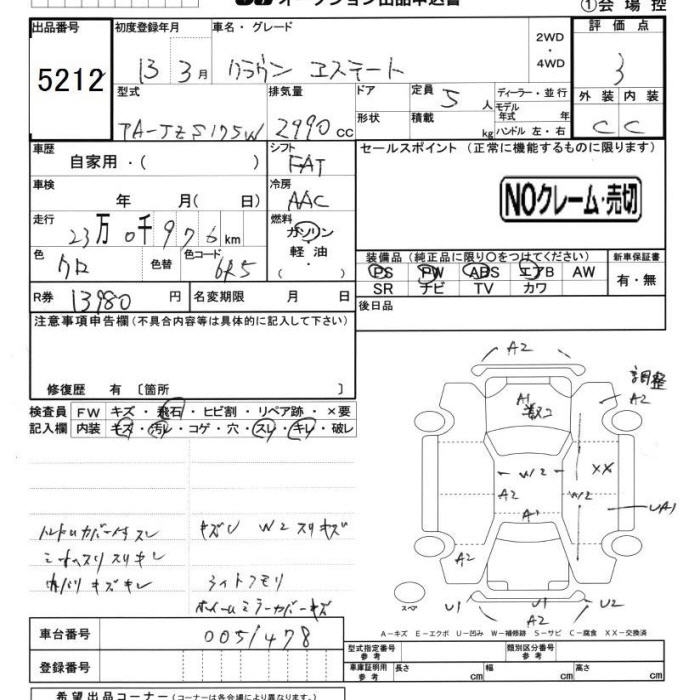 オークション出品申込書
①会場控
出品番号
5212
初度登録年月
13 3月
車名・グレード
クラウン エステート
2WD
・
4WD
評価点
3
型式
TA-JZS175W
排気量
2990 cc
ドア
形状
定員 5 人
積載 kg
ディーラー・並行
モデル年式 年
ハンドル 左・右
外装 内装
C C
車歴
自家用・( )
シフト
FAT
セールスポイント (正常に機能するものに限ります)
NOクレーム・売切
車検
年 月( 日)
冷房
AAC
走行
23万0千976km
燃料
ガソリン
軽油
・
色
クロ
色替
色コード
6R5
装備品(純正品に限り○をつけてください)
PS PW ABS エアB AW
SR ナビ TV カワ
新車保証書
有・無
R券 13980 円
名変期限 月 日
後日品
注意事項申告欄(不具合内容等は具体的に記入して下さい)
修復歴 有 〔箇所 〕
検査員 FW キズ・飛石・ヒビ割・リペア跡・×要
記入欄 内装 キズ・汚レ・コゲ・穴・スレ・キレ・破レ
キズU W2スリキズ
ライトクモリ
ホイールミラーカバーキズ
A2
A1
調整
A2
W2
XX
A2
W2
A1
UA1
A2
スペア
U1
U1
U2
A2
A-キズ E-エクボ U-凹み W-補修跡 S-サビ C-腐食 XX-交換済
車台番号
0051478
登録番号
型式指定番号
参考
類別区分番号
参考
車庫証明用
参考
長さ cm
幅 cm
高さ cm
希望出品コーナー(コーナーは各会場により異なります。)